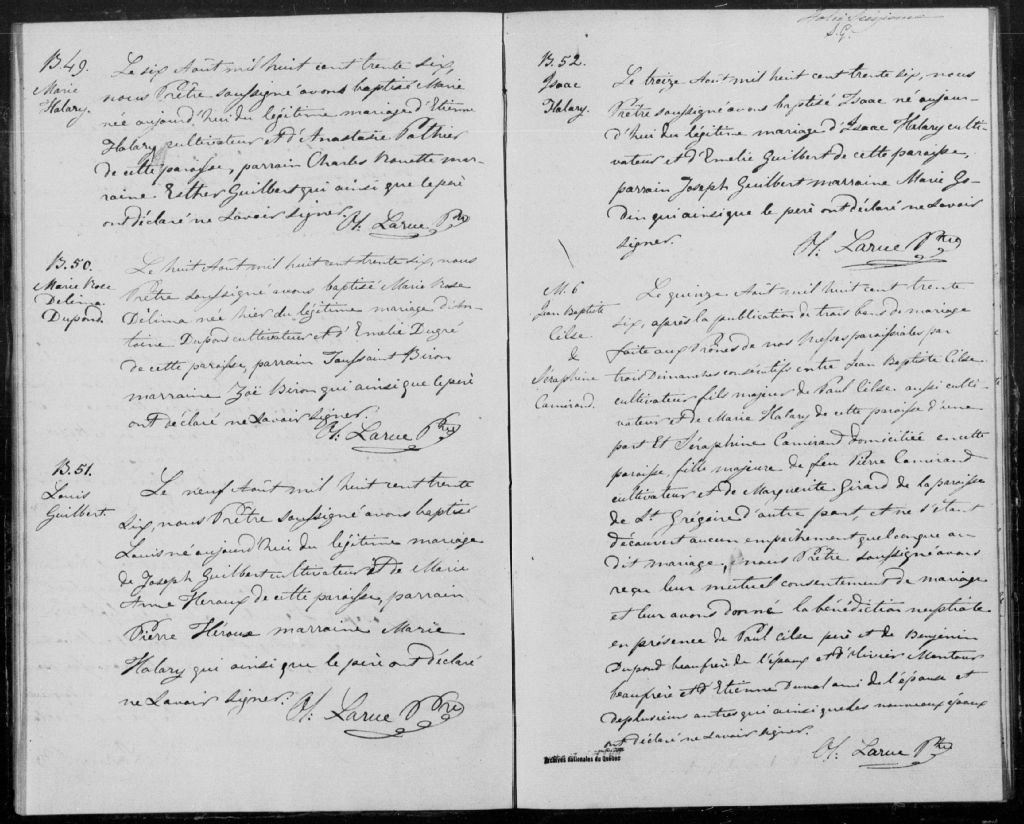 B.49.
Marie
Halary.
Le six Août mil huit cent trente six,
nous Prêtre soussigné avons baptisé Marie
née aujourd'hui du légitime mariage d'Etienne
Halary cultivateur et d'Anastasie Pothier
de cette paroisse, parrain Charles Rouette mar-
raine Esther Guilbert qui ainsi que le père
ont déclaré ne savoir signer.
Larue Ptre
B.50.
Marie Rose
Délima
Dupond.
Le huit Août mil huit cent trente six, nous
Prêtre soussigné avons baptisé Marie Rose
Délima née hier du légitime mariage d'An-
toine Dupond cultivateur et d'Emelie Dugré
de cette paroisse, parrain Toussaint Biron
marraine Zoë Biron qui ainsi que le père
ont déclaré ne savoir signer.
Larue Ptre
B.51.
Louis
Guilbert.
Le neuf Août mil huit cent trente
six, nous Prêtre soussigné avons baptisé
Louis né aujourd'hui du légitime mariage
de Joseph Guilbert cultivateur et de Marie
Anne Heroux de cette paroisse, parrain
Pierre Héroux marraine Marie
Halary qui ainsi que le père ont déclaré
ne savoir signer.
Larue Ptre
Folio Sixième
B.52.
Isaac
Halary.
Le treize Août mil huit cent trente six, nous
Prêtre soussigné avons baptisé Isaac né aujour-
d'hui du légitime mariage d'Isaac Halary culti-
vateur et d'Emelie Guilbert de cette paroisse,
parrain Joseph Guilbert marraine Marie Go-
din qui ainsi que le père ont déclaré ne savoir
signer.
Larue Ptre
M. 6
Jean Baptiste
Cilse
&
Séraphine
Camirand.
Le quinze Août mil huit cent trente
six, après la publication de trois bans de mariage
faite aux Prônes de nos Messes paroissiales par
trois Dimanches consécutifs entre Jean Baptiste Cilse
cultivateur fils majeur de Paul Cilse aussi culti-
vateur et de Marie Halary de cette paroisse d'une
part Et Séraphine Camirand domiciliée en cette
paroisse, fille majeure de feu Pierre Camirand
cultivateur et de Marguerite Girard de la paroisse
de St. Grégoire d'autre part, et ne s'étant
découvert aucun empêchement quelconque au
dit mariage, nous Prêtre soussigné avons
reçu leur mutuel consentement de mariage
et leur avons donné la bénédiction nuptiale
en présence de Paul Cilse père et de Benjamin
Dupond beaufrère de l'époux et d'Olivier Montour
beaufrère et d'Etienne Duval ami de l'épouse et
de plusieurs autres qui ainsi que les nouveaux époux
ont déclaré ne savoir signer.
Larue Ptre
Archives nationales du Québec